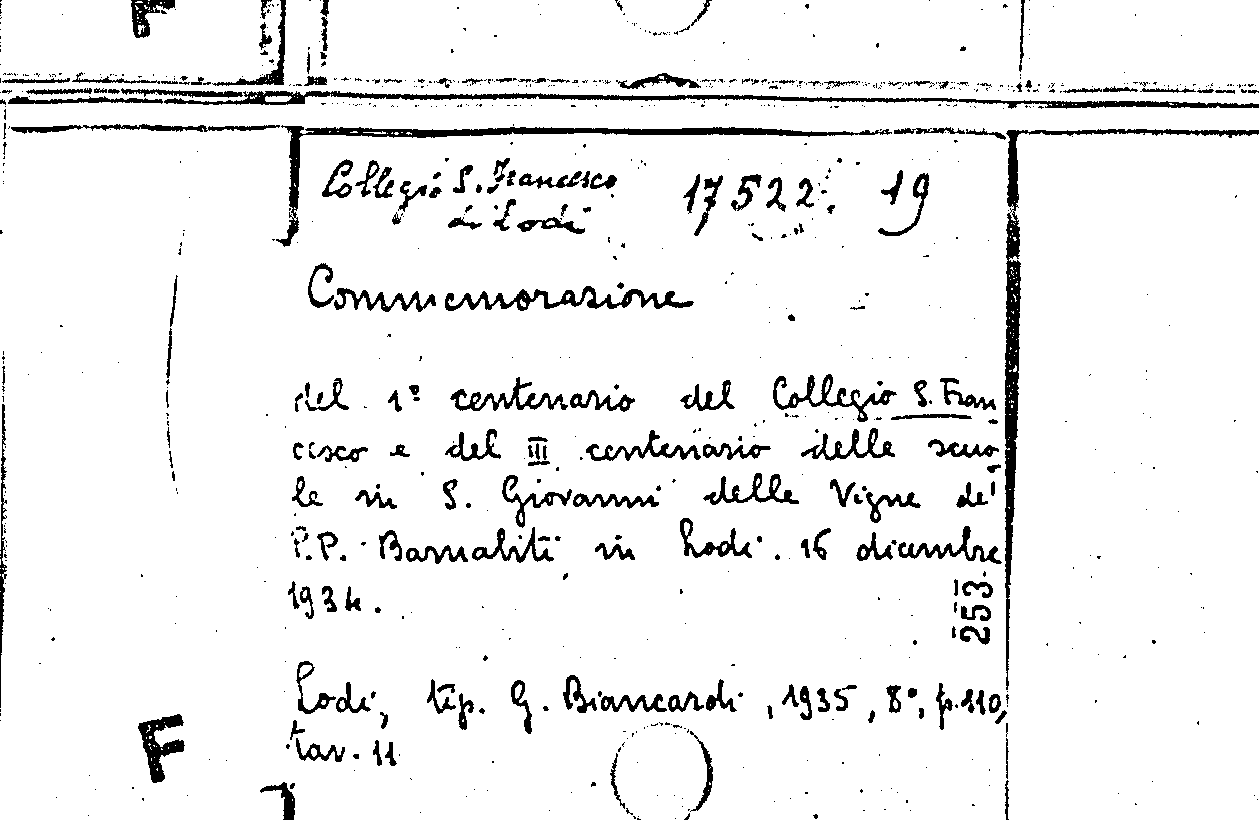 F
Collegio S. Francesco
di Lodi
17522. 19
Commemorazione
del 1º centenario del Collegio S. Fran
cesco e del III centenario delle scuo
le in S. Giovanni delle Vigne de'
P.P. Barnabiti in Lodi. 16 dicembre
1934.
253
Lodi, tip. G. Biancardi, 1935, 8º, p. 110,
tav. 11
F